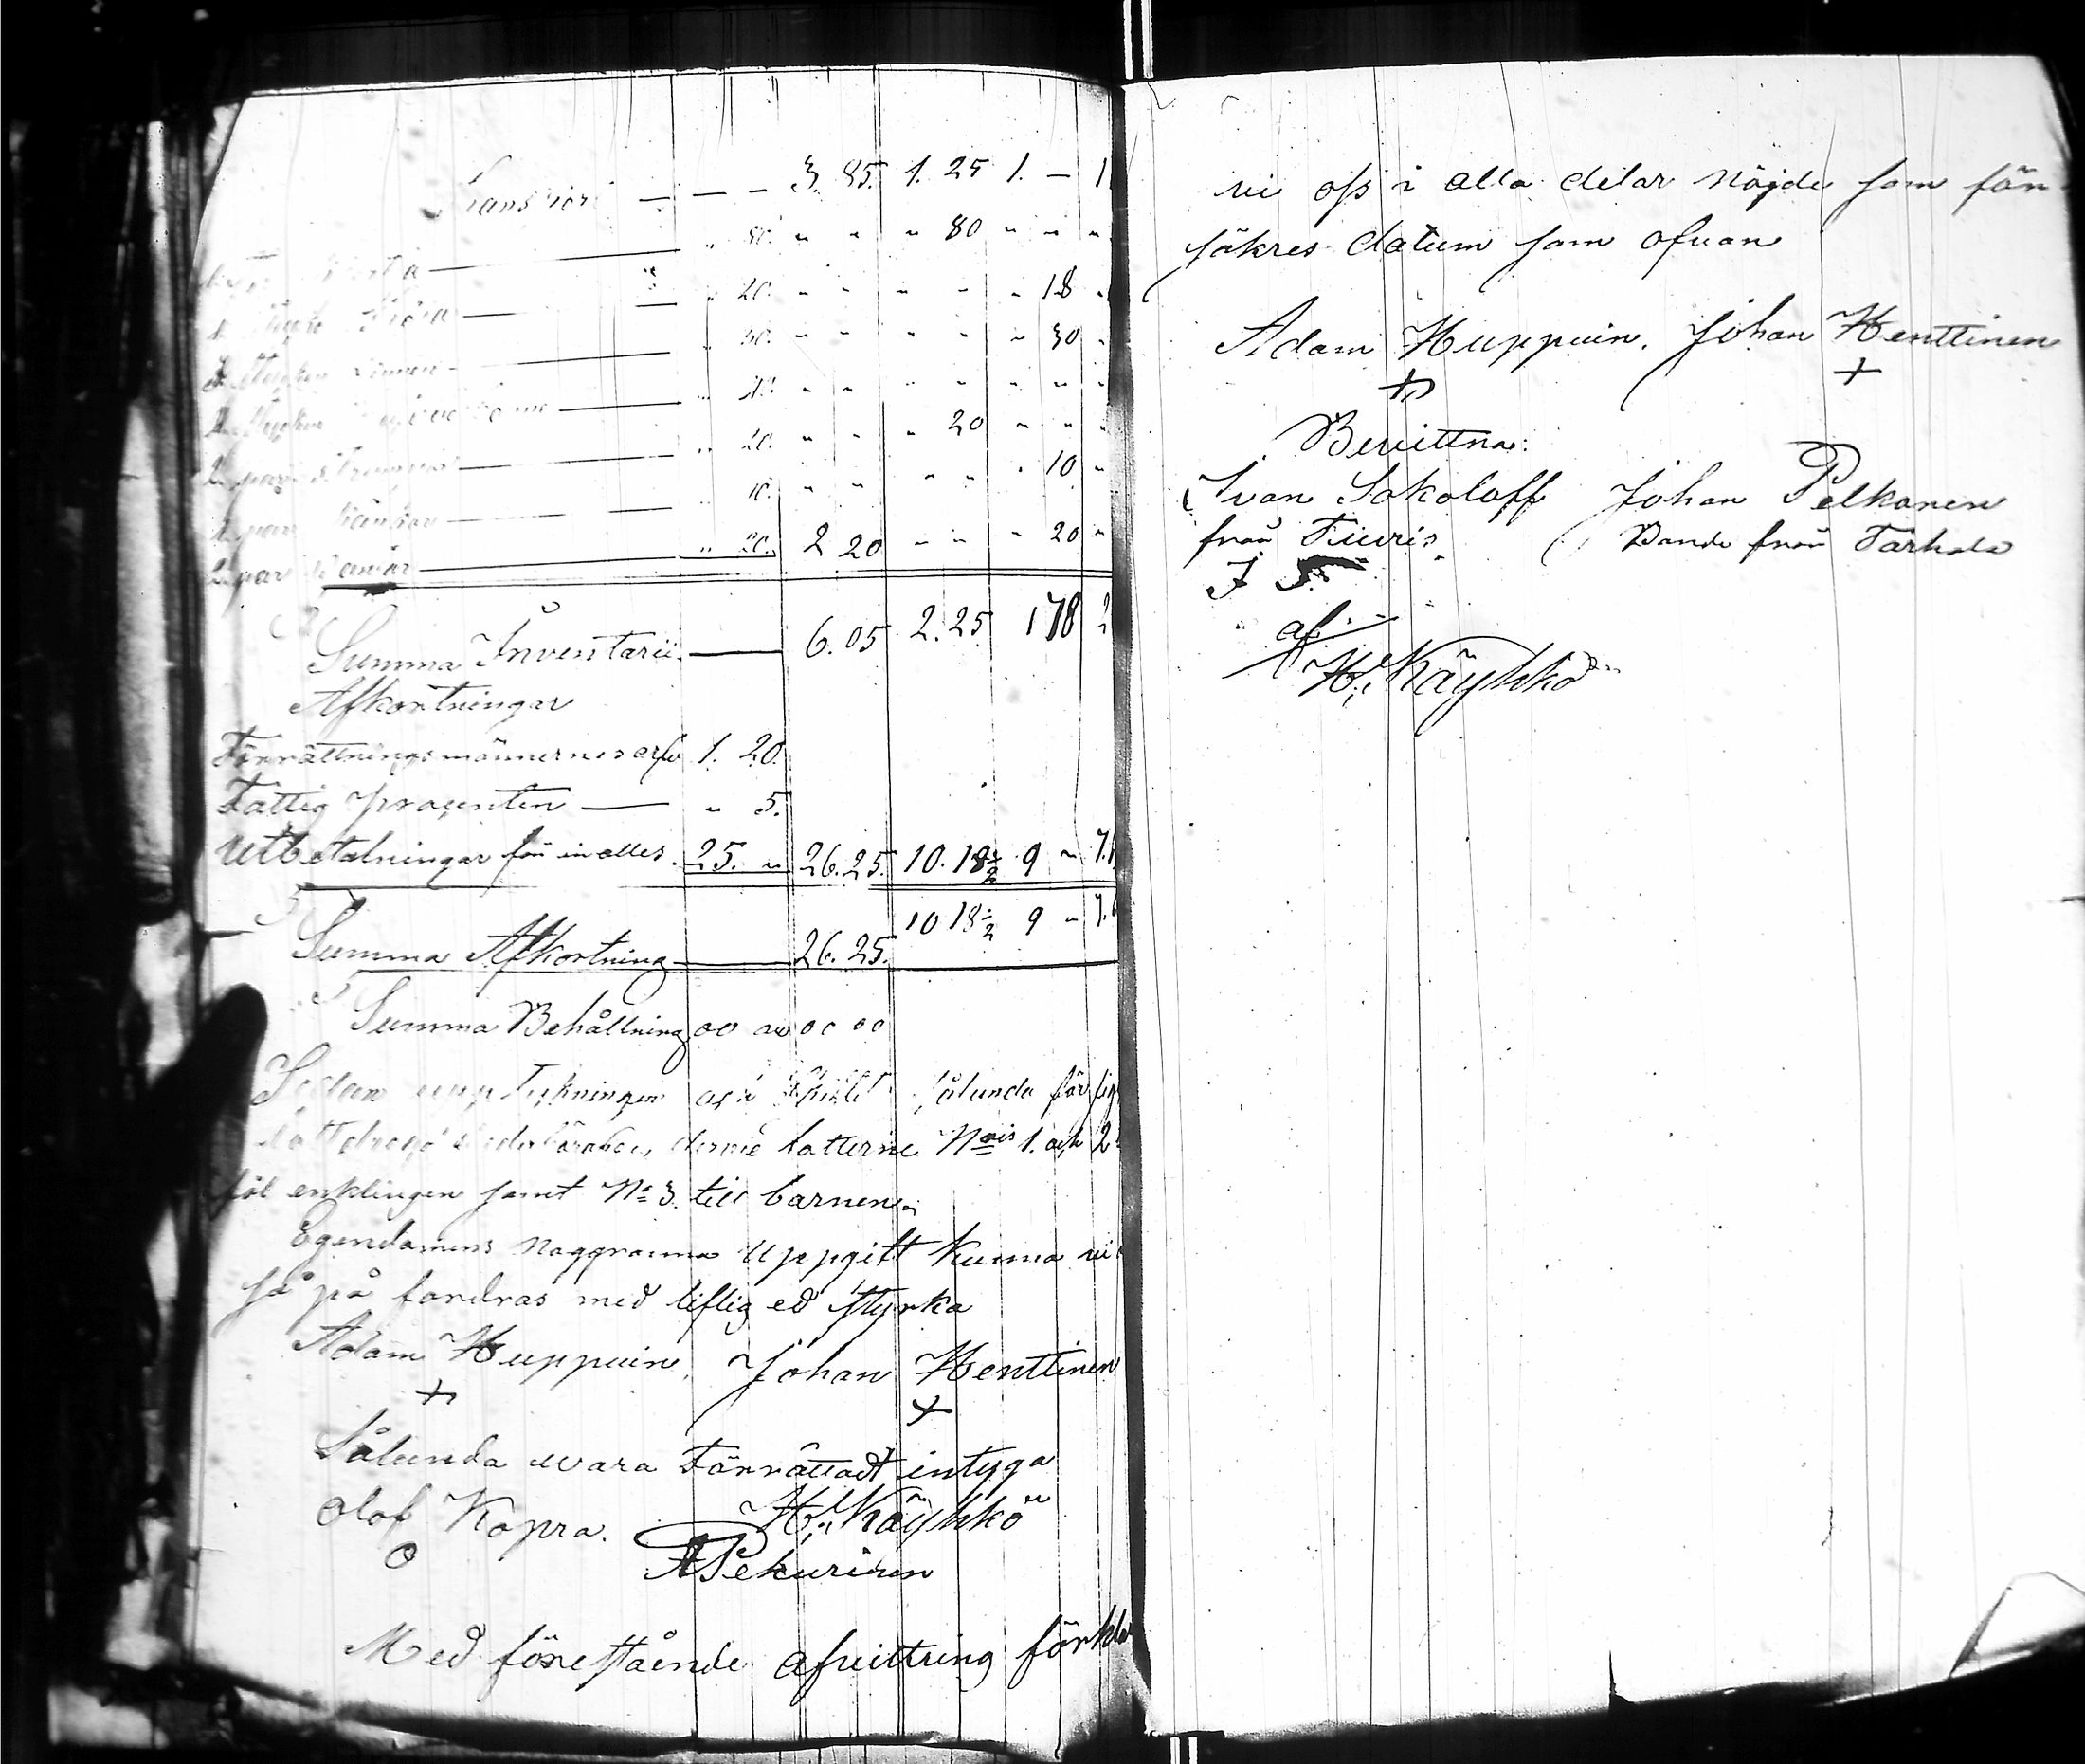 Transport — — — 3. 85. 1. 25 1. — 1
" 50. " " " 80 " " "
" 20. " " " " " 18 "
2 stycken linnen — " 50. " " " " " 30 "
2 stycken
2 par strumpor — " 20. " " " 20 " " "
1 par känkor — " 10. " " " " " 10 "
2 par — " 20. 2 20 " " " 20 "
Summa Inventarii — 6. 05 2. 25 1 78 2
Afkortningar
Förrättningsmännernes arfv 1. 20.
Fattig procenten — " 5.
Utbetalningar för in alles. 25. " 26. 25. 10. 18 1/2 9 " 7.
Summa Afkortning — 26. 25. 10 18 1/2 9 " 7.
Summa Behållning 00 00 00 00
Sedan upptekningen och skildt sålunda för sig
derme lotterne N:ris 1. och 2
föl enklingen samt N:o 3. till barnen.
Egendomens noggranna uppgift kunna vi
så på fordras med liflig ed styrka
Adam Huppuin, Johan Henttinen
+ +
Sålunda wara Förrättadt intyga
Olof Kopra. H. Käyhkö
O A Pekurinen
Med förestående afvittring förkla
vi oss i alla delar nöjde som för
säkres datum som ofvan
Adam Huppuin. Johan Henttinen
+ +
Bevittna:
Ivan Sokoloff Johan Pelkonen
från Tiuris Bonde från Tarhola
I S.
af
H. Käyhkö